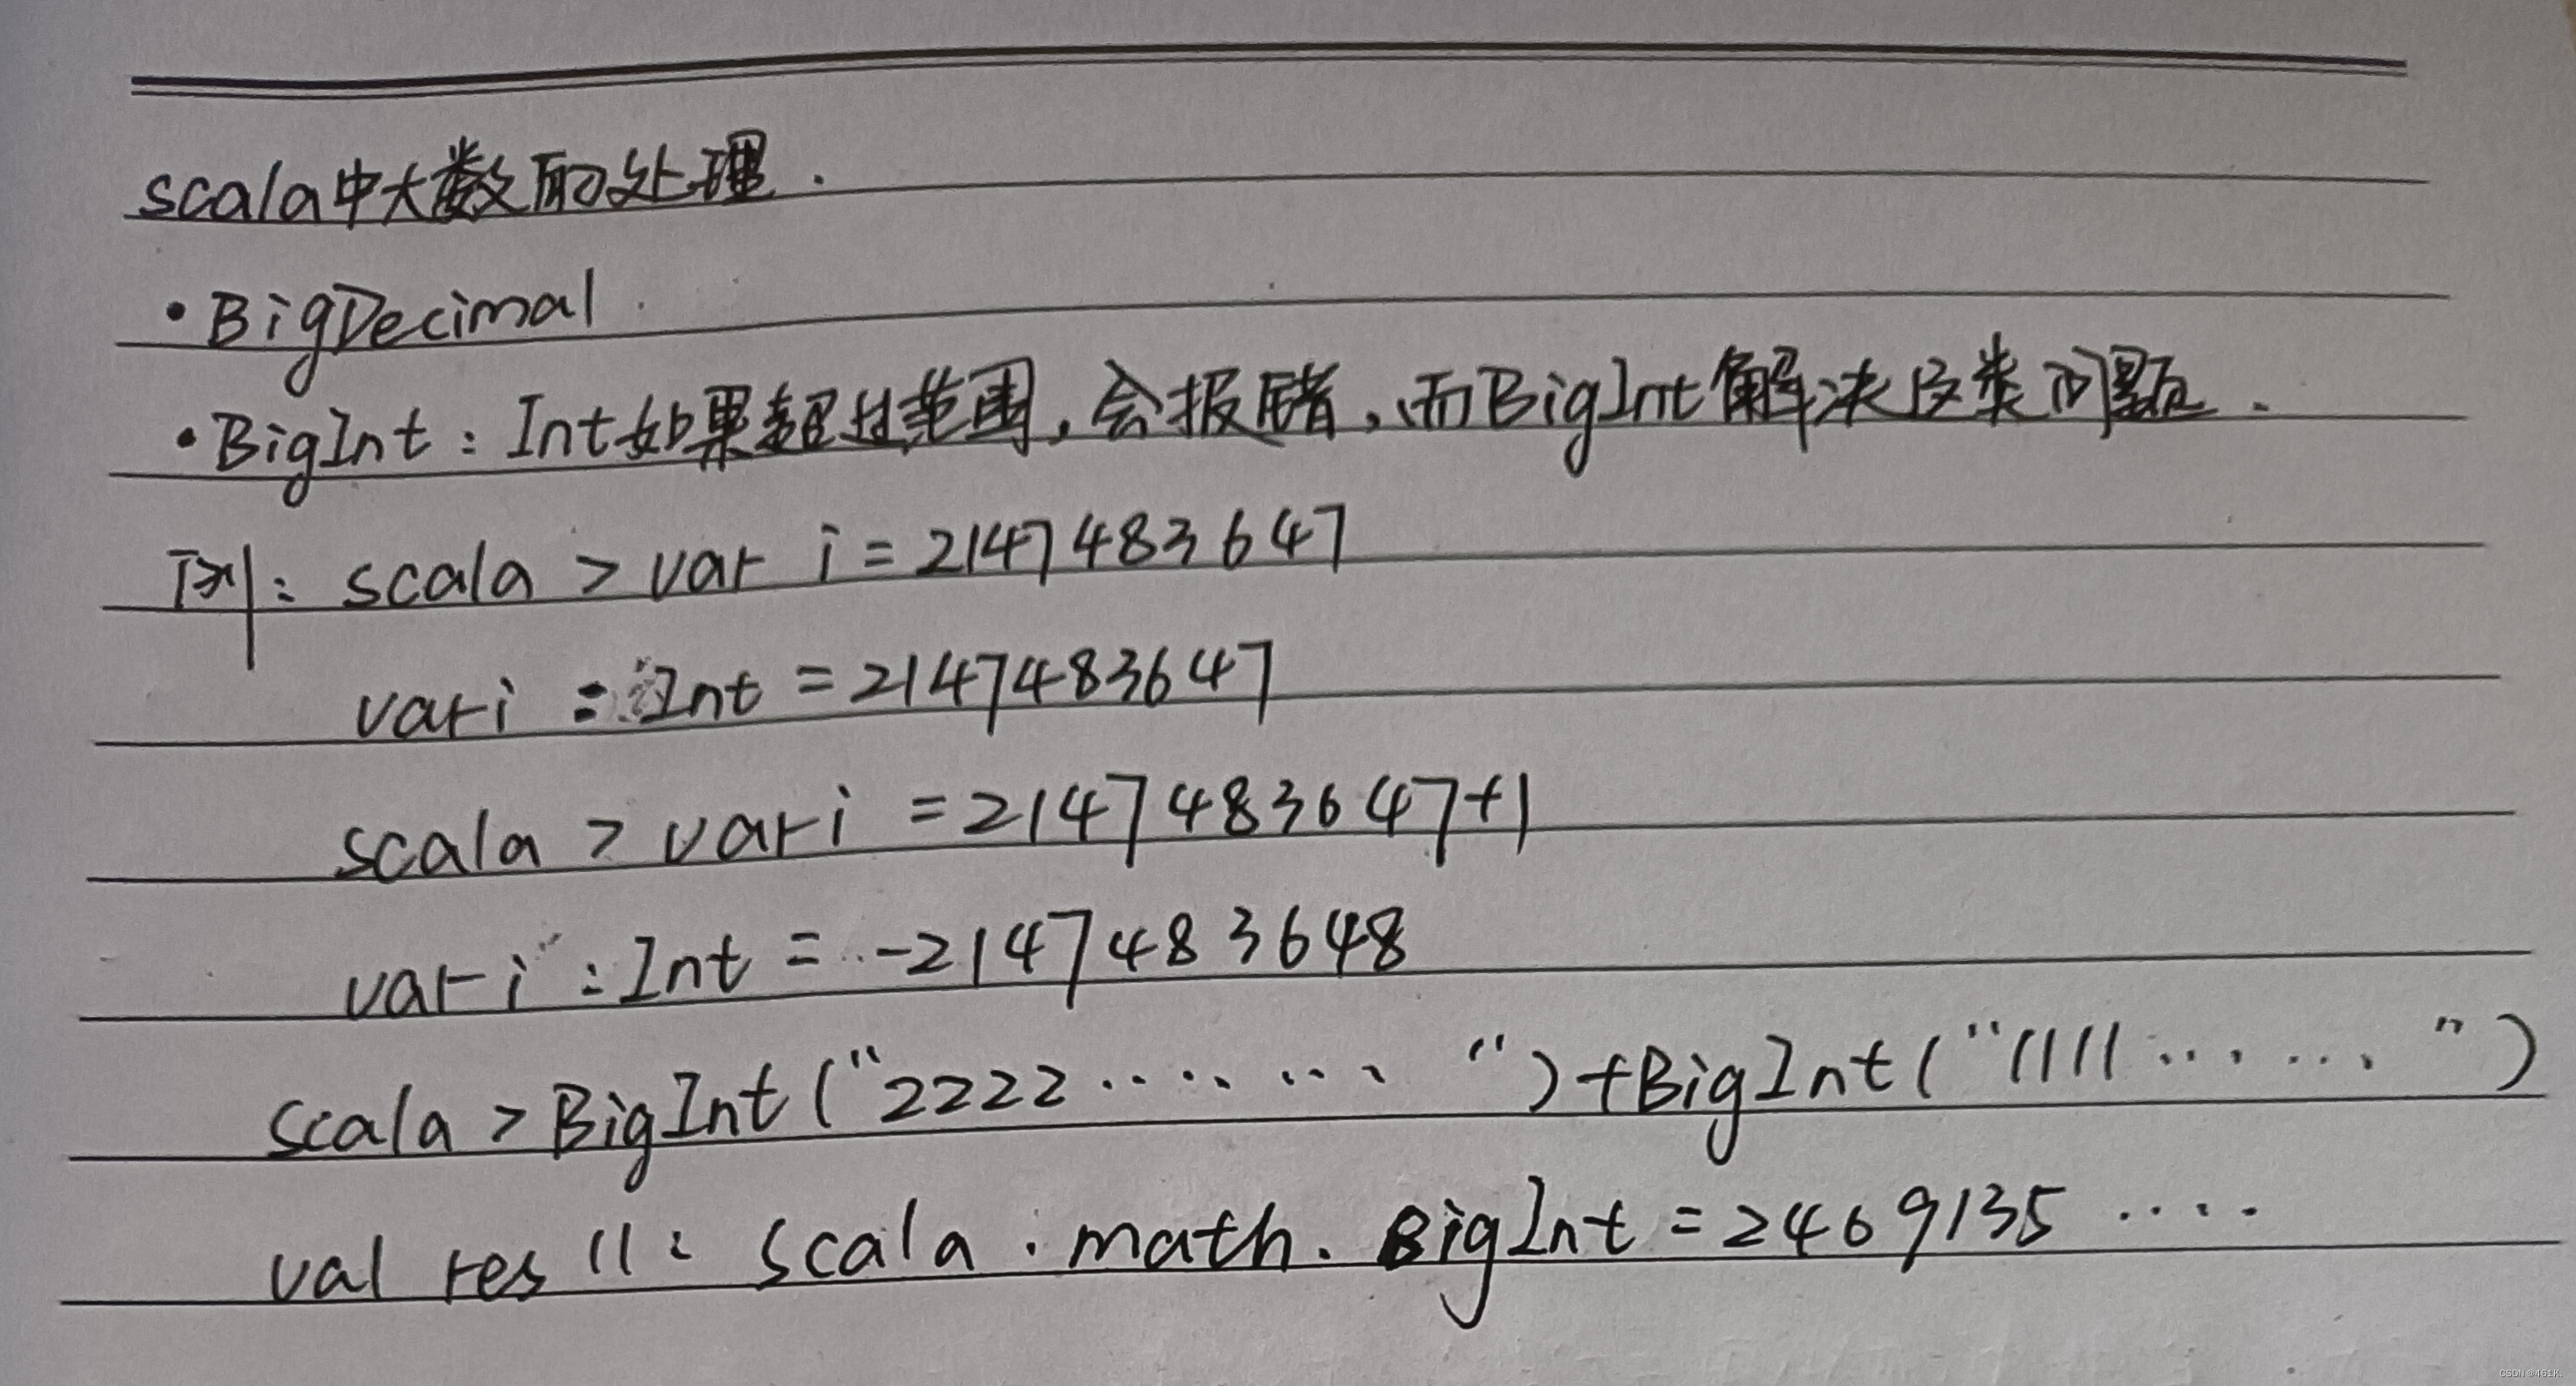 scala中大数的处理.
·BigDecimal
·BigInt:Int如果超过范围,会报错,而BigInt解决这类问题.
例:scala > var i = 2147483647
var i : Int = 2147483647
scala > var i = 2147483647+1
var i : Int = -2147483648
scala > BigInt("2222........")+BigInt("1111.......")
val res11: scala.math.BigInt = 2469135....
CSDN @461K.